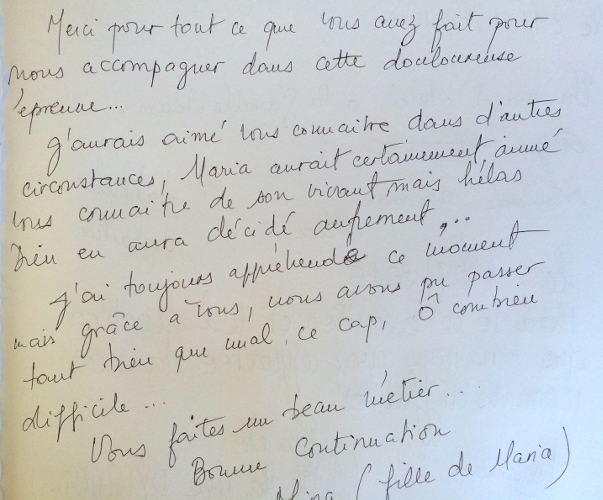 Merci pour tout ce que vous avez fait pour
nous accompagner dans cette douloureuse
épreuve...
J'aurais aimé vous connaitre dans d'autres
circonstances, Maria aurait certainement aimé
vous connaitre de son vivant mais hélas
Dieu en aura décidé autrement...
J'ai toujours appréhendé ce moment
mais grâce à vous, nous avons pu passer
tant bien que mal, ce cap, Ô combien
difficile...
Vous faites un beau métier...
Bonne continuation
(fille de Maria)